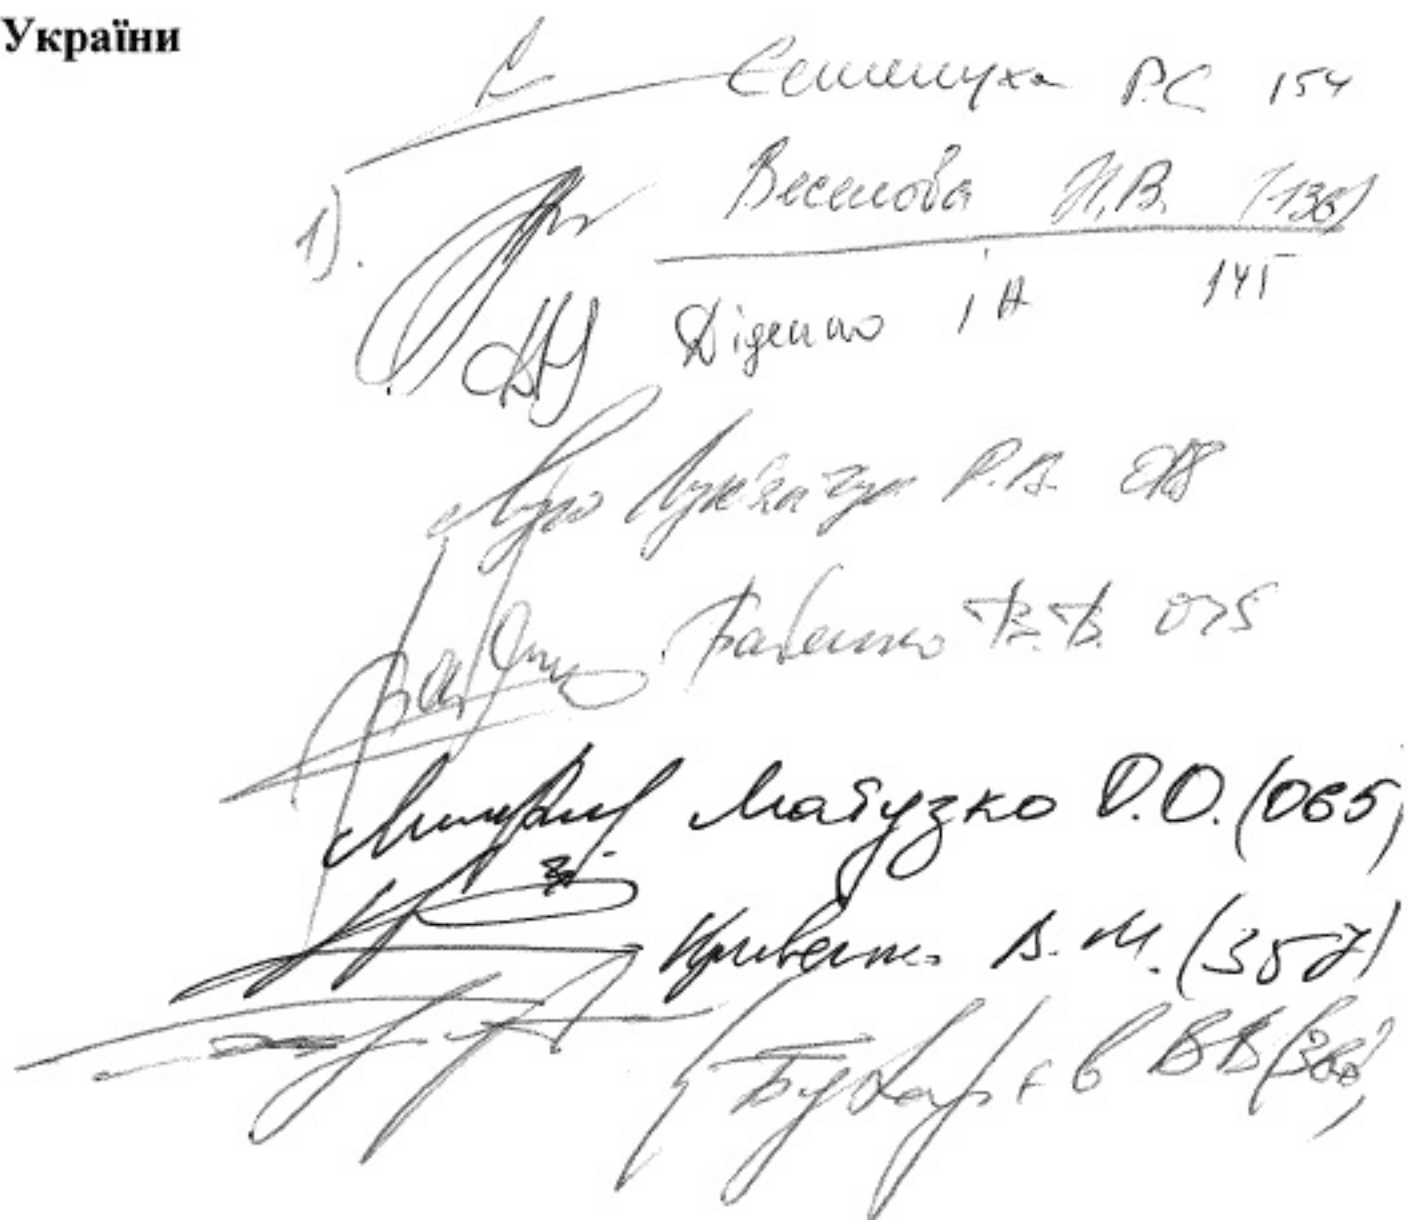 України
Семинуха Р.С 154
1). Веселова Н.В. (138)
Діденко І А 141
Лук'янчук Р.В. 078
Бабенко В.В. 075
Матузко О.О. (065)
Кривенко В.М. (357)
Бухарєв В В (360)